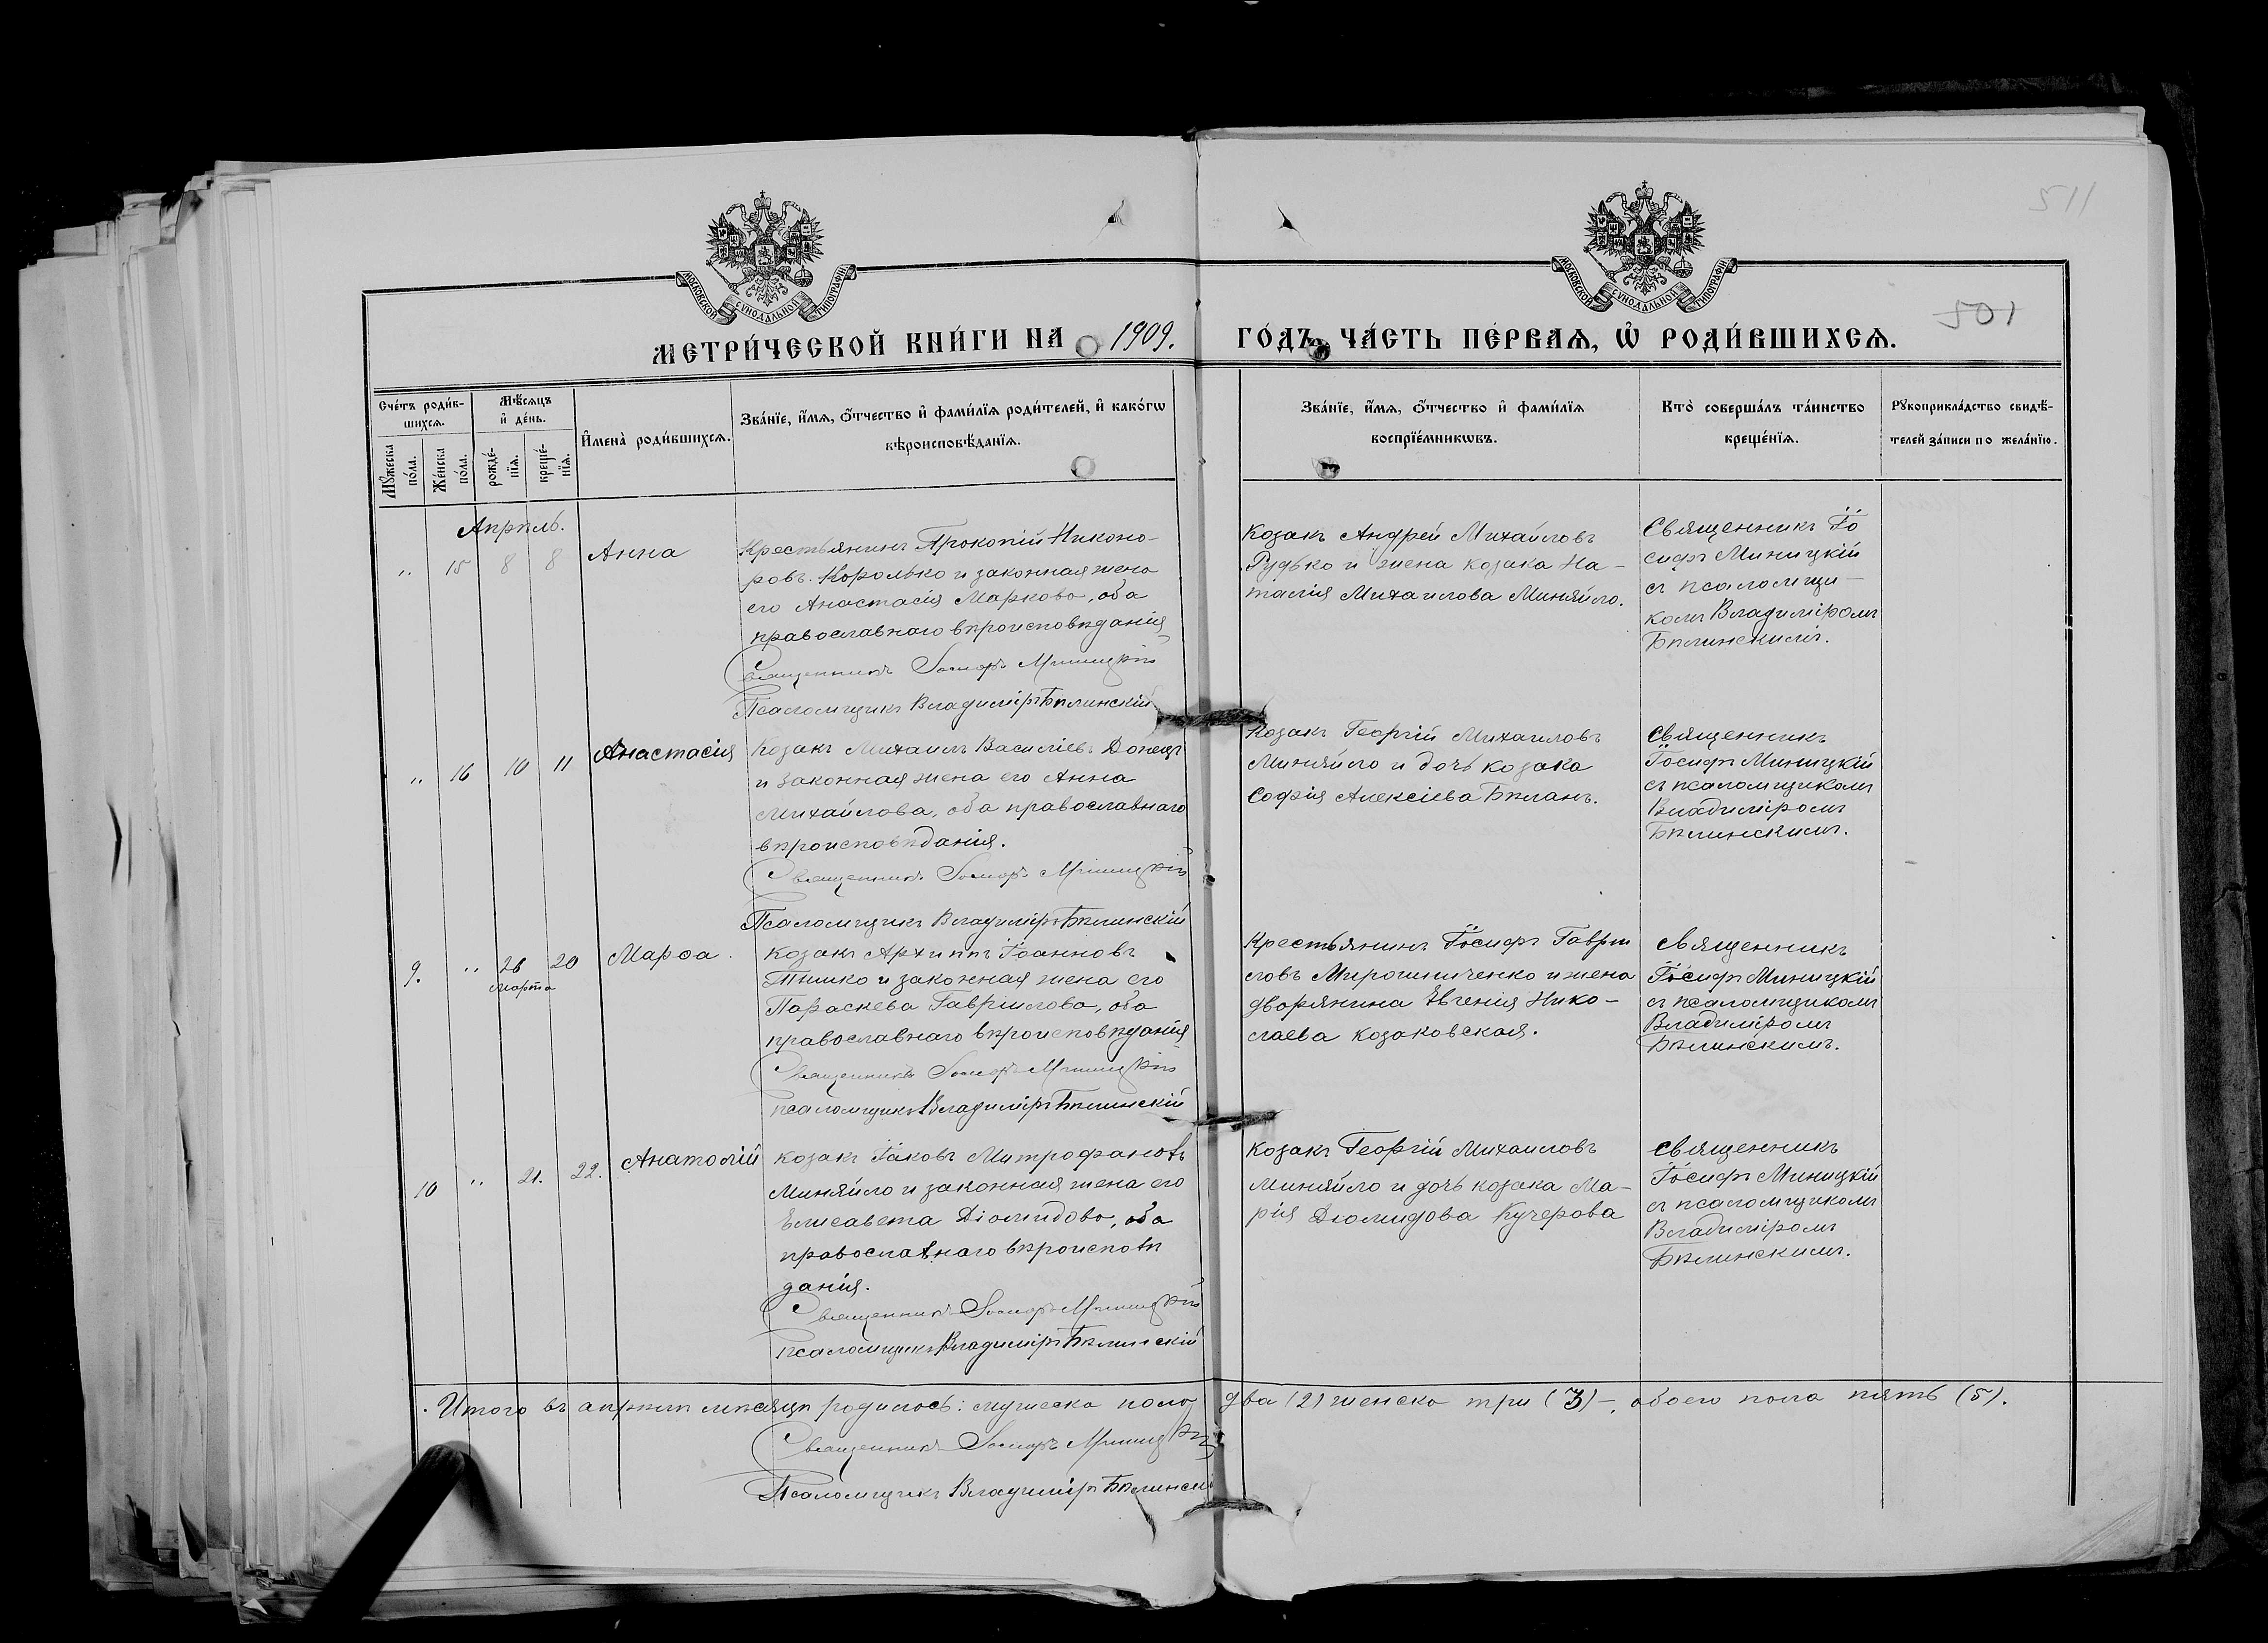 511
501
МОСКОВСКОЙ СУНОДАЛЬНОЙ ТИПОГРАФІИ
МОСКОВСКОЙ СУНОДАЛЬНОЙ ТИПОГРАФІИ
МЕТРИ́ЧЕСКОЙ КНИ́ГИ НА 1909. ГО́ДЪ, ЧА́СТЬ ПЕ́РВАѦ, Ѡ҆ РОДИ́ВШИХСѦ.
Сче́тъ роди́в-
шихсѧ.
Мꙋ́жеска
по́ла.
Же́нска
по́ла.
Мѣ́сѧцъ
и҆ де́нь.
рожде́-
нїѧ.
креще́-
нїѧ.
И҆мена̀ роди́вшихсѧ.
Зва́нїе, и҆́мѧ, ѻ҆́тчество и҆ фами́лїѧ роди́телей, и҆ како́гѡ
вѣроисповѣ́данїѧ.
Зва́нїе, и҆́мѧ, ѻ҆́тчество и҆ фами́лїѧ
воспрїе́мникѡвъ.
Кто̀ соверша́лъ та́инство
креще́нїѧ.
Рꙋкоприкла́дство свидѣ́-
телей за́писи по жела́нїю.
Апрѣль.
„ 15 8 8 Анна
Крестьянинъ Прокопій Никоно-
ровъ Королько и законная жена
его Анастасія Маркова, оба
православнаго вѣроисповѣданія
Священникъ Іосифъ Миницкій
Псаломщикъ Владиміръ Бѣлинскій
Козакъ Андрей Михайловъ
Рудько и жена козака На-
талія Михаилова Миняйло.
Священникъ Іо
сифъ Миницкій
съ псаломщи-
комъ Владиміромъ
Бѣлинскимъ.
„ 16 10 11 Анастасія
Козакъ Михаилъ Василіевъ Донецъ
и законная жена его Анна
Михайлова, оба православнаго
вѣроисповѣданія.
Священникъ Іосифъ Миницкій
Псаломщикъ Владиміръ Бѣлинскій
Козакъ Георгій Михаиловъ
Миняйло и дочь козака
Софія Алексіева Бѣланъ.
Священникъ
Іосифъ Миницкій
съ псаломщикомъ
Владиміромъ
Бѣлинскимъ.
9. „ 26 20 Марѳа.
марта
Козакъ Архипъ Іоанновъ
Тимко и законная жена его
Параскева Гавріилова, оба
православнаго вѣроисповѣданія
Священникъ Іосифъ Миницкій
псаломщикъ Владиміръ Бѣлинскій
Крестьянинъ Іосифъ Гаврі
ловъ Мирошниченко и жена
дворянина Евгенія Нико-
лаева Козаковская.
Священникъ
Іосифъ Миницкій
съ псаломщикомъ
Владиміромъ
Бѣлинскимъ.
10 „ 21. 22. Анатолій
Козакъ Іаковъ Митрофановъ
Миняйло и законная жена его
Елисавета Діомидова, оба
православнаго вѣроисповѣ
данія.
Священникъ Іосифъ Миницкій
псаломщикъ Владиміръ Бѣлинскій
Козакъ Георгій Михаиловъ
Миняйло и дочь козака Ма-
рія Діомидова Кучерова
Священникъ
Іосифъ Миницкій
съ псаломщикомъ
Владиміромъ
Бѣлинскимъ.
Итого въ апрѣлѣ мѣсяцѣ родилось: мужеска пола два (2) женска три (3) -, обоего пола пять (5).
Священникъ Іосифъ Миницкій
Псаломщикъ Владиміръ Бѣлинскі